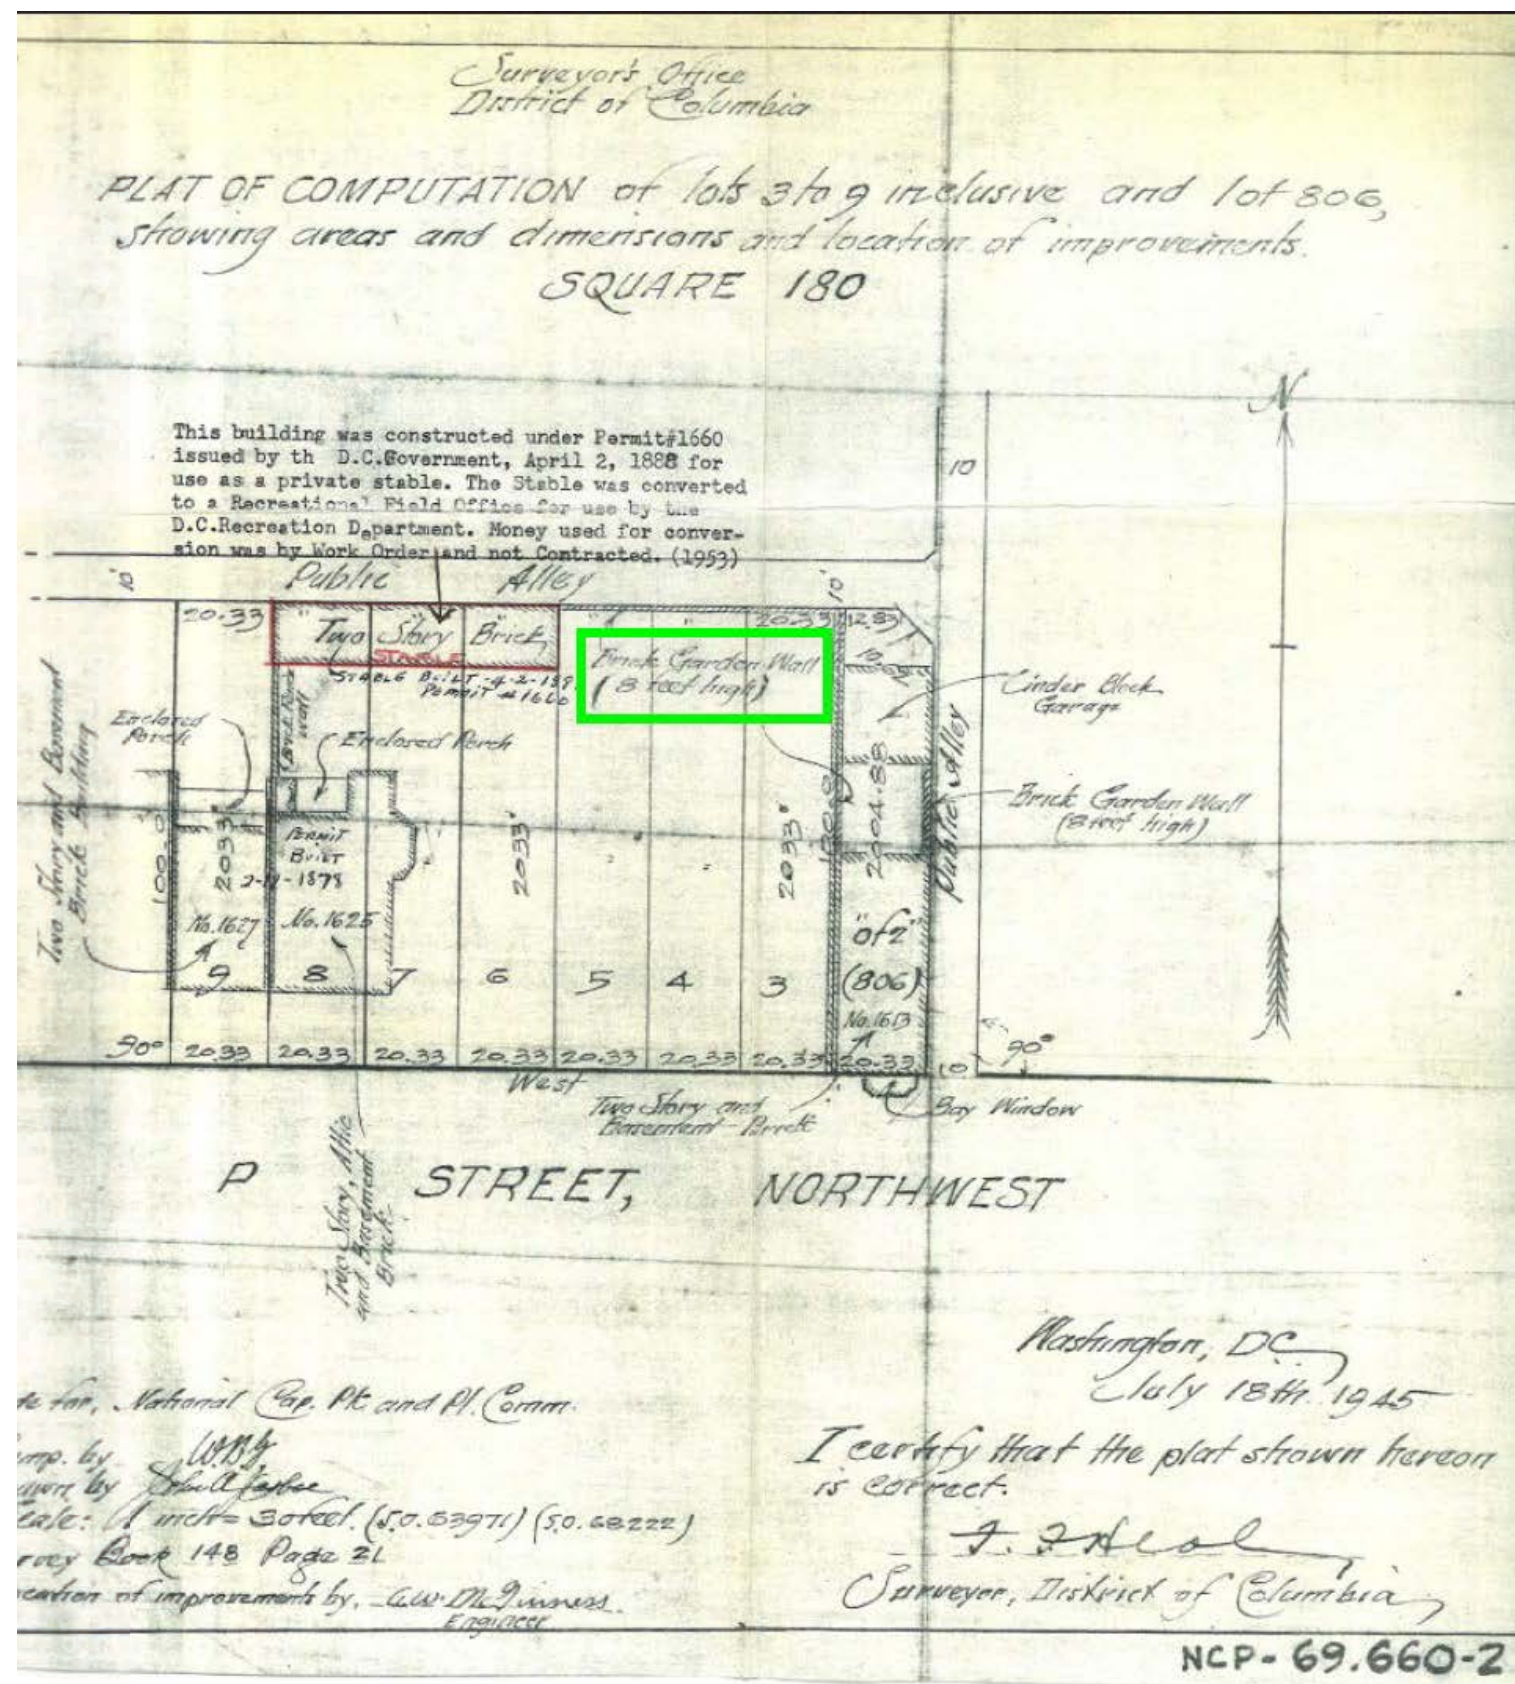 Surveyor's Office
District of Columbia
PLAT OF COMPUTATION of lots 3 to 9 inclusive and lot 806,
showing areas and dimensions and location of improvements.
SQUARE 180
N
This building was constructed under Permit#1660
issued by th D.C.Government, April 2, 1888 for
use as a private stable. The Stable was converted
to a Recreational Field Office for use by the
D.C.Recreation Department. Money used for conver-
sion was by Work Order and not Contracted. (1953)
10
10'
Public Alley
10'
20.33 " " " " " " 20.33 12.83
Two Story Brick
STABLE
STABLE BUILT -4-2-188
PERMIT #1660
Brick Garden Wall
(8 feet high)
10
Cinder Block
Garage
Two Story and Basement
Brick Building
Enclosed
Porch
Brick
Wall
Enclosed Porch
Public Alley
Brick Garden Wall
(8 feet high)
100.0
2033
PERMIT
BUILT
1878
2033
2033
100.0
2004.88
No. 1627
No. 1625
"of 2"
9
8
7
6
5
4
3
(806)
No. 1613
90° 20.33 20.33 20.33 20.33 20.33 20.33 20.33 20.33 10 90°
West
Two Story and
Basement - Brick
Bay Window
Two Story, Attic
and Basement
Brick
P STREET, NORTHWEST
Washington, D.C.
July 18th 1945
for, National Cap. Pk and Pl. Comm.
by W.B.G.
by
1 inch = 30 feet. (S.O. 63971) (S.O. 68222)
Book 148 Page 21
of improvements by,
Engineer
I certify that the plat shown hereon
is correct.
Surveyor, District of Columbia
NCP- 69.660-2